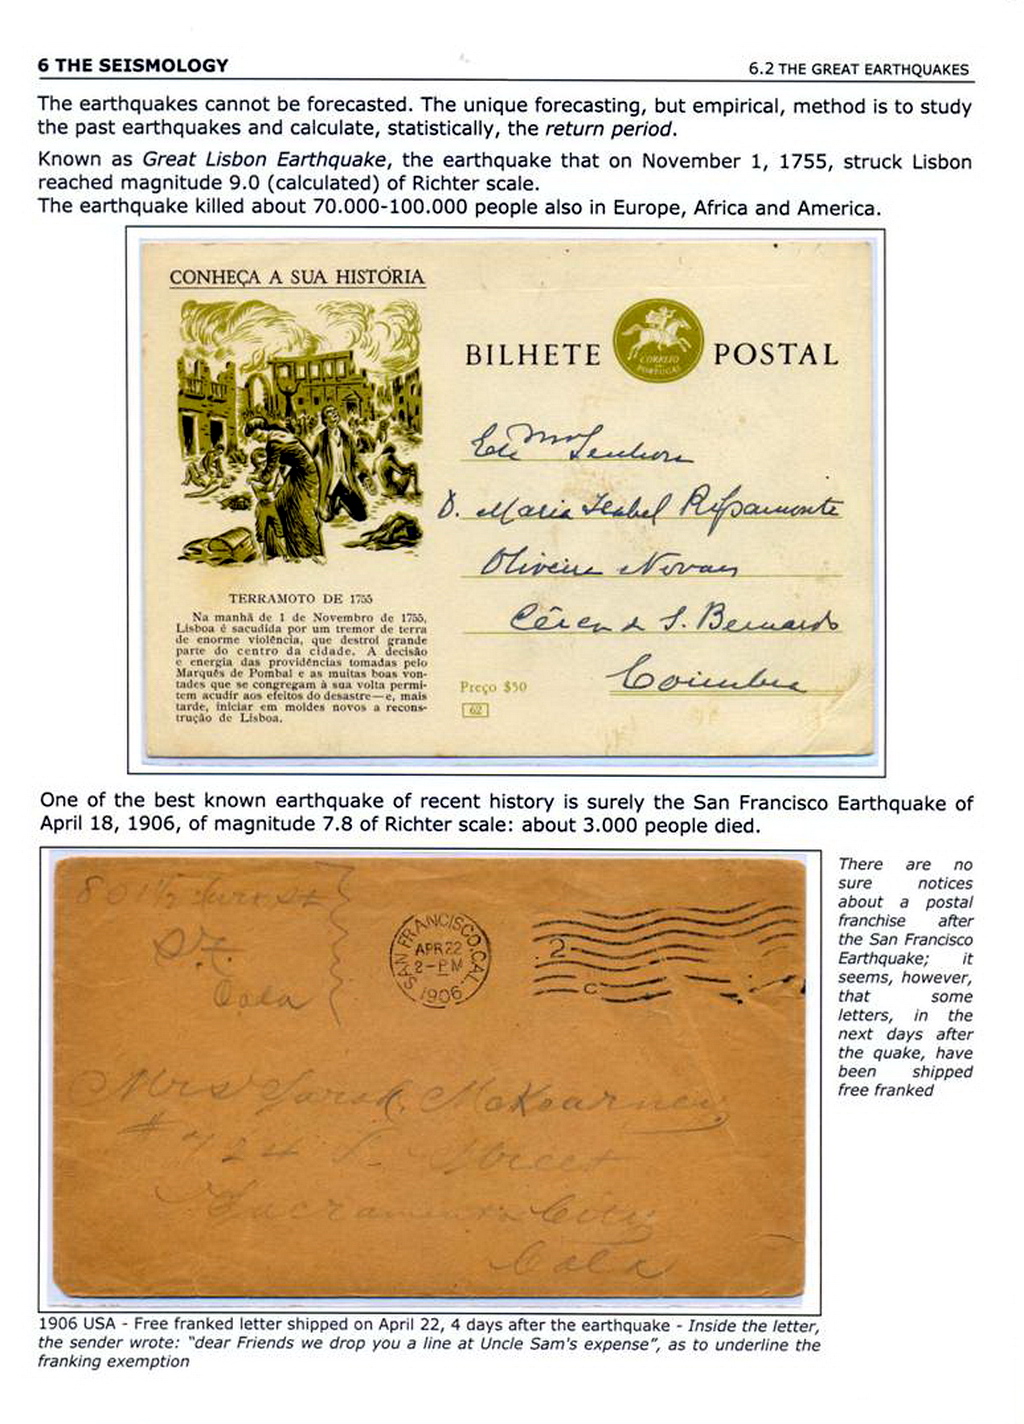 6 THE SEISMOLOGY
6.2 THE GREAT EARTHQUAKES
The earthquakes cannot be forecasted. The unique forecasting, but empirical, method is to study
the past earthquakes and calculate, statistically, the return period.
Known as Great Lisbon Earthquake, the earthquake that on November 1, 1755, struck Lisbon
reached magnitude 9.0 (calculated) of Richter scale.
The earthquake killed about 70.000-100.000 people also in Europe, Africa and America.
CONHEÇA A SUA HISTÓRIA
BILHETE POSTAL
CORREIO
DE
PORTUGAL
Senhora
D. Maria Isabel Ripamonte
Oliveira Novais
Cêrca de S. Bernardo
Coimbra
TERRAMOTO DE 1755
Na manhã de 1 de Novembro de 1755,
Lisboa é sacudida por um tremor de terra
de enorme violência, que destrói grande
parte do centro da cidade. A decisão
e energia das providências tomadas pelo
Marquês de Pombal e as muitas boas von-
tades que se congregam à sua volta permi-
tem acudir aos efeitos do desastre—e, mais
tarde, iniciar em moldes novos a recons-
trução de Lisboa.
Preço $50
62
One of the best known earthquake of recent history is surely the San Francisco Earthquake of
April 18, 1906, of magnitude 7.8 of Richter scale: about 3.000 people died.
801½
S.F.
Cala
SAN FRANCISCO, CAL.
APR 22
2-PM
1906
2
C
Mrs Sarah McKearney
# 724 Street
Sacramento City
Cala
There are no
sure notices
about a postal
franchise after
the San Francisco
Earthquake; it
seems, however,
that some
letters, in the
next days after
the quake, have
been shipped
free franked
1906 USA - Free franked letter shipped on April 22, 4 days after the earthquake - Inside the letter,
the sender wrote: "dear Friends we drop you a line at Uncle Sam's expense", as to underline the
franking exemption